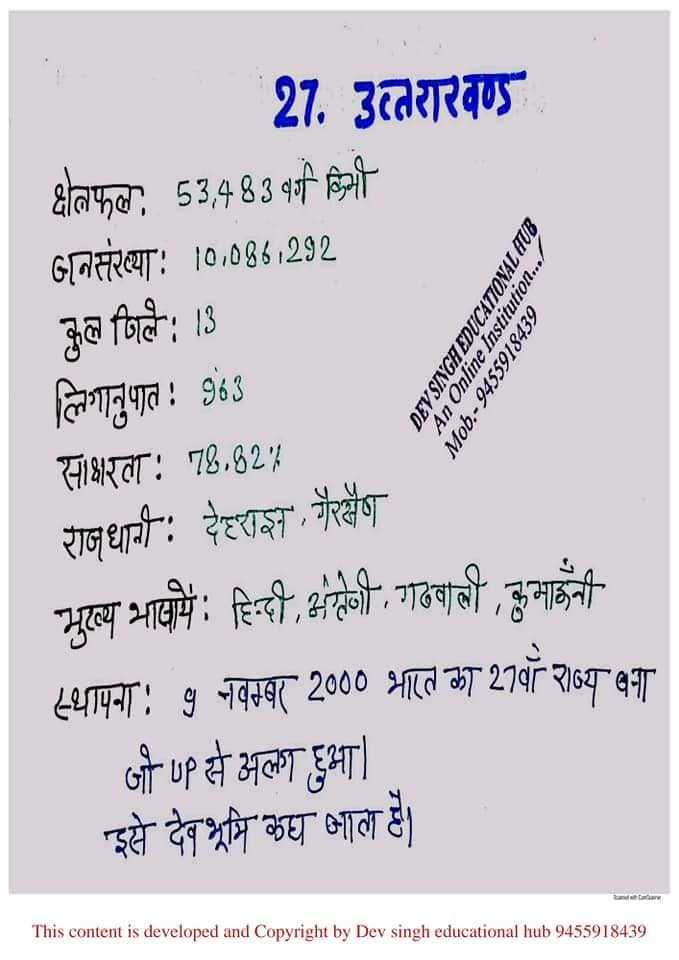 27. उत्तराखण्ड
क्षेत्रफल: 53,483 वर्ग किमी
जनसंख्या: 10,086,292
कुल जिले: 13
लिंगानुपात: 963
साक्षरता: 78.82%
राजधानी: देहरादून, गैरसैंण
मुख्य भाषायें: हिन्दी, अंग्रेजी, गढवाली, कुमाऊँनी
स्थापना: 9 नवम्बर 2000 भारत का 27वाँ राज्य बना
जो UP से अलग हुआ।
इसे देव भूमि कहा जाता है।
DEV SINGH EDUCATIONAL HUB
An Online Institution...!
Mob.- 9455918439
Scanned with CamScanner
This content is developed and Copyright by Dev singh educational hub 9455918439